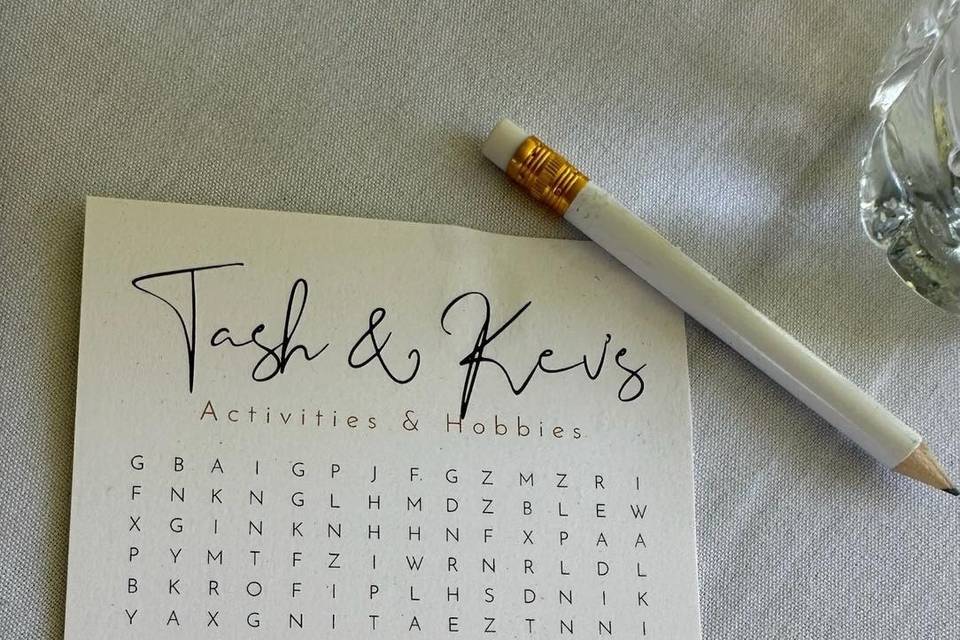 Tash & Kev's
Activities & Hobbies
G B A I G P J F G Z M Z R I
F N K N G L H M D Z B L E W
X G I N K N H H N F X P A A
P Y M T F Z I W R N R L D L
B K R O F I P L H S D N I K
Y A X G N I T A E Z T N N I